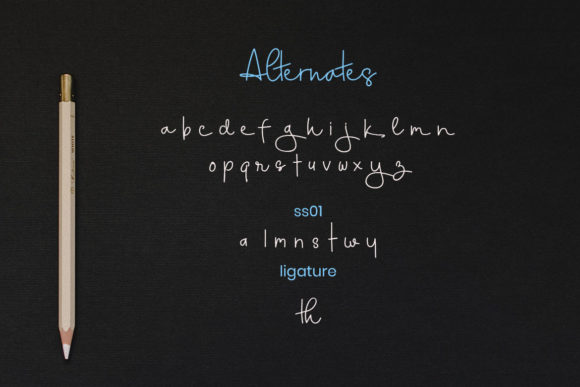 Alternates
a b c d e f g h i j k l m n
o p q r s t u v w x y z
ss01
a l m n s t w y
ligature
th